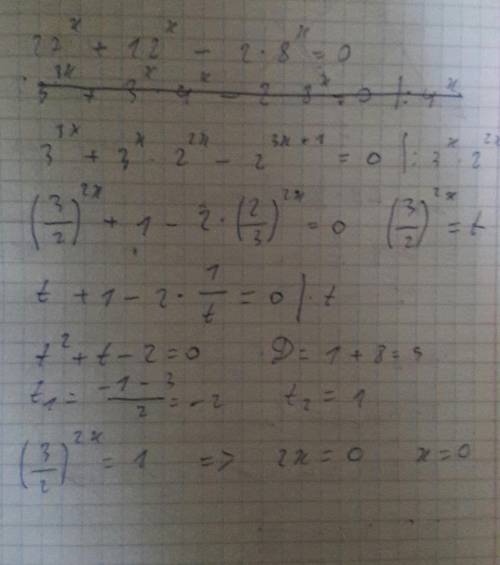 27^x + 12^x - 2·8^x = 0
3^{3x} + 3^x · 4^x - 2 · 8^x = 0 |: 4^x
3^{3x} + 3^x · 2^{2x} - 2^{3x+1} = 0 |: 3^x · 2^{2x}
(3/2)^{2x} + 1 - 2 · (2/3)^{2x} = 0 (3/2)^{2x} = t
t + 1 - 2 · 1/t = 0 |· t
t^2 + t - 2 = 0 D = 1 + 8 = 9
t_1 = (-1-3)/2 = -2 t_2 = 1
(3/2)^{2x} = 1 => 2x = 0 x = 0